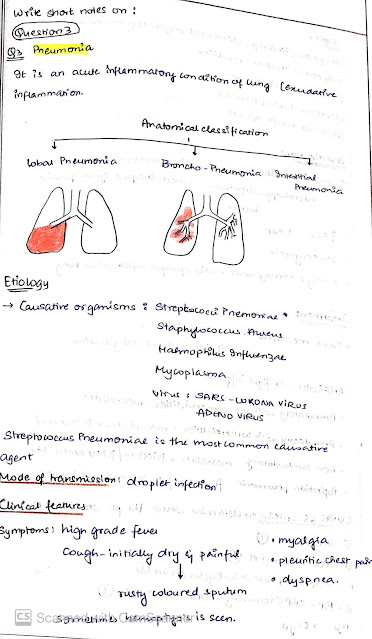 Write short notes on :
Question 3
Q3 Pneumonia
It is an acute inflammatory condition of lung (exudative
inflammation.
Anatomical classification
Lobal Pneumonia
Broncho-Pneumonia
Interstitial
Pneumonia
Etiology
→ Causative organisms : Streptococci Pnemoniae *
Staphylococcus Aureus
Haemophilus Influenzae
Mycoplasma
Virus : SARS - CORONA VIRUS
ADENO VIRUS
Streptococcus Pneumoniae is the most common causative
agent
Mode of transmission: droplet infection
Clinical features
Symptoms: high grade fever
Cough - initially dry & painful
↓
rusty coloured sputum
sometimes hemoptysis is seen.
• myalgia
• pleuritic chest pain
• dyspnea.
CS Scanned with CamScanner